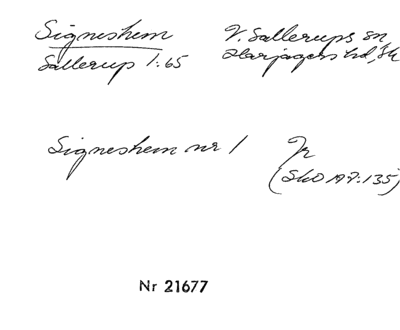 Signeshem
Sallerup 1:65
V. Sallerups sn
Harjagers hd, Sk
Signeshem nr 1
Jr
(SkO A7:135)
Nr 21677